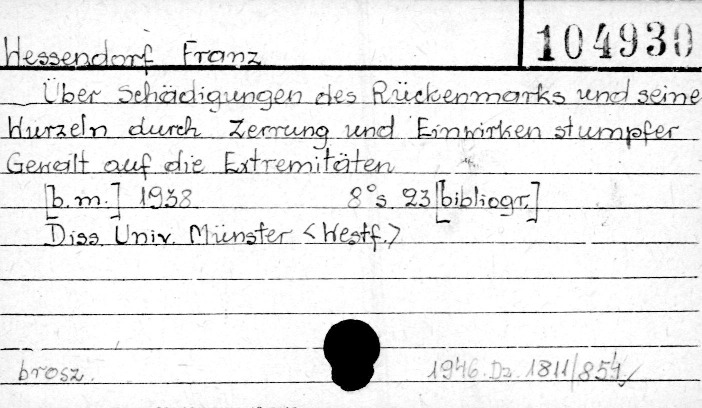 104930
Wessendorf Franz
Über Schädigungen des Rückenmarks und seine
Wurzeln durch Zerrung und Einwirken stumpfer
Gewalt auf die Extremitäten
[b.m.] 1938 8° s. 23 [bibliogr.]
Diss. Univ. Münster <Westf.>
brosz. 1946. Dz. 1811/854